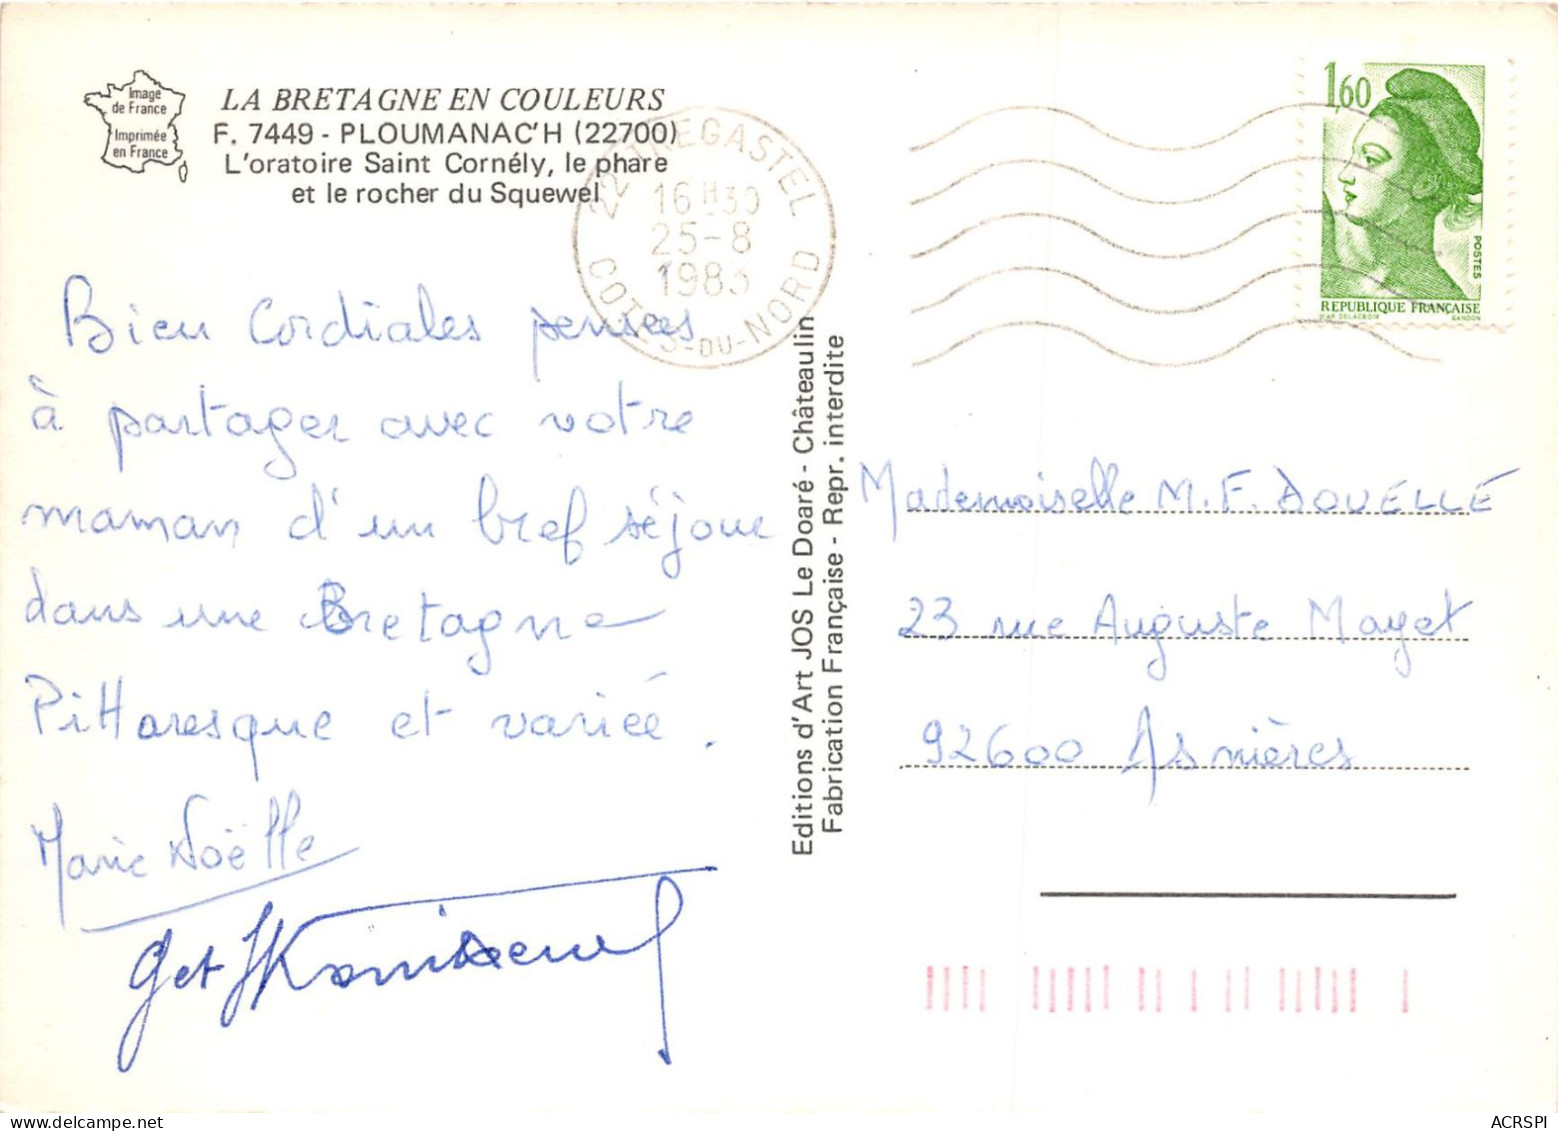 Image
de France
Imprimée
en France
LA BRETAGNE EN COULEURS
F. 7449 - PLOUMANAC'H (22700)
L'oratoire Saint Cornély, le phare
et le rocher du Squewel
22 TREGASTEL
16H30
25-8
1983
COTES-DU-NORD
1,60
POSTES
REPUBLIQUE FRANÇAISE
D'AP. DELACROIX GANDON
Bien Cordiales pensées
à partager avec votre
maman d'un bref séjour
dans une Bretagne
Pittoresque et variée.
Marie Noëlle
Editions d'Art JOS Le Doaré - Châteaulin
Fabrication Française - Repr. interdite
Mademoiselle M. F. DOUELLE
23 rue Auguste Mayet
92600 Asnières
ACRSPI